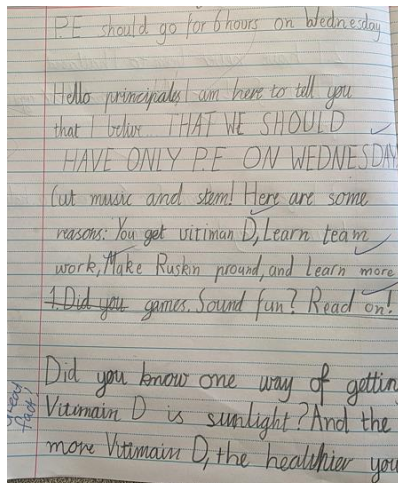 P.E should go for 6 hours on Wednesday
Hello principales I am here to tell you
that I belive... THAT WE SHOULD
HAVE ONLY P.E ON WEDNESDAY
Cut music and stem! Here are some
reasons: You get vitiman D, Learn team
work, Make Ruskin pround, and learn more
1. Did you games. Sound fun? Read on!
Did you know one way of gettin
Vitimain D is sunlight? And the
more Vitimain D, the healthier you
Great fact!